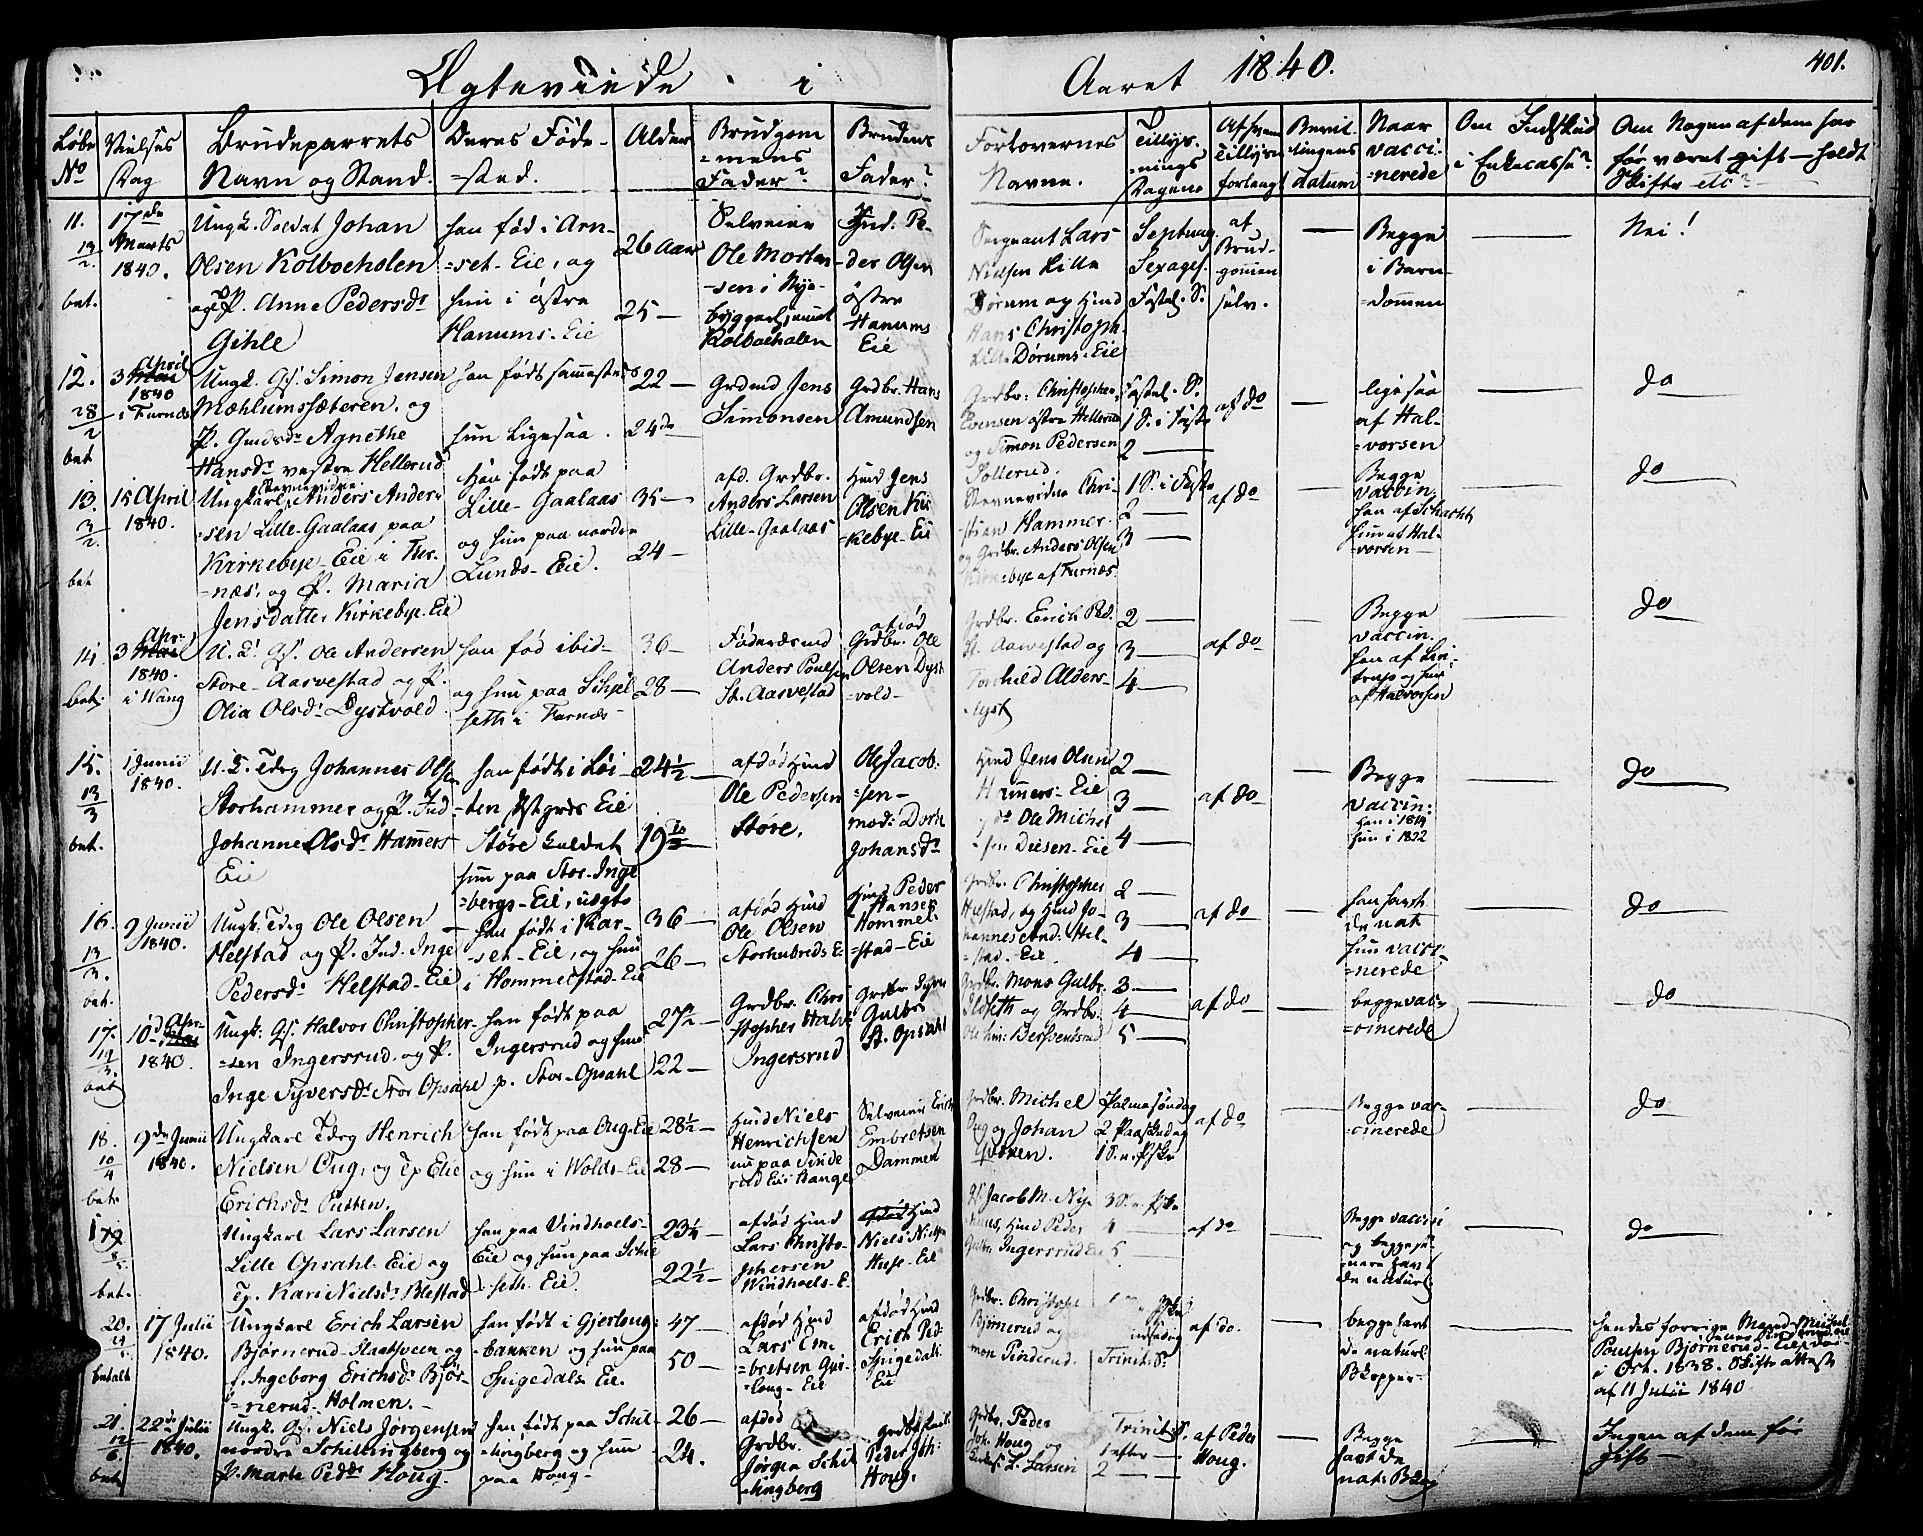 Ægteviede i Aaret 1840.
401.
Løbe No
Vielses Dag
Brudeparrets Navn og Stand.
Deres Føde-
=sted.
Alder
Brudgom
=mens
Fader?
Brudens
Fader?
Forlovernes
Navne.
Tillys-
=nings
Dagene
Af hvem
Tillysn:
forlangt
Bevil-
lingens
Datum
Naar
vacci-
=nerede
Om Indskud
i Enkecasse?
Om Nogen af dem har
før været gift – holdt
Skifte etc?
11.
13/2.
bet.
17de
Marts
1840.
Ungk. Soldat Johan
Olsen Kolboeholen
og P. Anne Pedersdr
Gihle
han fød i Arn-
=set-Eie, og
hun i østre
Hanums-Eie
26 Aar
25 –
Selveier
Ole Morten-
=sen i
Kolboeholen
Ind. Pe-
der Olsen
østre
Hanums
Eie
Sergeant Lars
Nielsen Lille
Dørum og Hmd
Hans Christoph.
Lille Dørums-Eie
Septuag.
Sexages.
Fastel. S.
af
Brud-
gommen
selv.
Begge
i Barn-
=dommen
Nei!
12.
28/2
bet
3 April
1840
i Furnes
Ungk. Gs. Simon Jensen
Mæhlumssæteren, og
P. Gmdsdr Agnethe
Hansdr vestre Hellerud
han født sammesteds
hun ligesaa.
22 –
24 do
Grdmd Jens
Simonsen
Grdbr. Hans
Amundsen
Grdbr. Christopher
Evensen østre Hellerud
og Simon Pedersen
Tollerud.
Fastel. S.
1 S. i Faste
2 –
af do
ligesaa
af Hal-
=vorsen
do
13.
3/2.
bet
15 April
1840.
Ungkarl Anders Ander-
sen Lille-Gaalaas paa
Kirkebye-Eie i Fur-
=næs, og P. Maria
Jensdatter Kirkebye-Eie
Han født paa
Lille-Gaalaas
og hun paa nordre
Lunds-Eie.
35 –
24 –
afd. Grdbr.
Anders Larsen
Lille-Gaalaas
Hmd Jens
Olsen Kir
=kebye-Eie
Stevnevidne Chri-
=stian Hammer
og Grdbr. Anders Olsen
Kirkebye af Furnæs
1 S. i Faste
2 –
3 –
af do
Begge
vaccin.
han af Schachts
hun af Hal-
vorsen –
do
14
bet.
3 Apr.
1840.
i Wang
U. K. Gs. Ole Andersen
Store-Aarvestad og P.
Olia Olsdr Dystvold.
han fød ibid-
og hun paa Schjel-
seth i Furnes
36 –
28 –
Føderaadsmd
Anders Poulsen
St. Aarvestad
afdød
Grdbr. Ole
Olsen Dyst
=vold –
Grdbr. Erich Ped.
St. Aarvestad og
2 –
3 –
4 –
af do
Begge
vaccin.
han af
og hun
af Halvorsen
do
15.
13/3
bet.
1 Junii
1840.
U. K. Tdrg Johannes Olsen
Storhammer og P. Ind
Johanne Olsdr Hamers
Eie
han født i Løi-
=ten Eie
Støre kaldet
hun paa Stor-Inge
=bergs-Eie,
24½ –
19
afdød Hmd
Ole Pedersen
Støre.
Ole Jacob-
=sen –
mod: Dorte
Johansdr
Hmd Jens Olsen
Hamers-Eie
Ole Michel
=sen Eie
2 –
3 –
4 –
af do
Begge
vaccin:
han i 1819
hun i 1822
do
16.
13/3.
bet.
9 Junii
1840.
Ungk. Tdrg Ole Olsen
Helstad og P. Ind. Inge
Pedersdr Helstad-Eie
han født i Aar-
=set-Eie, og hun
i Hommelstad-Eie
36 –
26 –
afdød Hmd
Ole Olsen
Hmd Peder
Hansen
Hommel-
=stad-Eie
Grdbr. Christopher
Helstad, og Hmd Jo-
hannes And: Hel-
=stad-Eie.
2 –
3 –
4 –
af do
han havt
de nat
hun vacci-
=nerede
do
17.
bet
10d Apr.
1840.
Ungk. Gs. Halvor Christopher-
=sen Ingersrud, og P.
Inge Syversdr Stor Opsahl
han født paa
Ingersrud og hun
p. Stor-Opsahl
27½ –
22 –
Grdbr. Chri
stopher Halv:
Ingersrud
Grdbr. Syver
Gulbr.
St. Opsahl
Grdbr. Mons Gulbr.
Eldseth og Grdbr.
3 –
4 –
5 –
af do
begge vac-
=cinerede
do
18.
10/4
bet.
9de Junii
1840.
Ungkarl Tdrg Henrich
Nielsen Oug, og Tp Elie
Erichsdr Putten.
han født paa Oug-Eie
og hun i Wolds-Eie
28½ –
28 –
Hmd Niels
Henrichsen
nu paa Sinde
rud Eie Vange
Selveier Erich
Embretsen
Dammen
Grdbr. Michel
Oug og Johan
Palmesøndag
2 Paaskedag
1 S. e. Paaske
af do
Begge vac-
=cinerede
do
19
8/5.
bet.
Ungkarl Lars Larsen
Lille Opsahl-Eie og
Tp. Kari Nielsdr Blestad
han paa Vindhoels-
Eie og hun paa Schjel
=seth-Eie.
23¼ –
22½ –
afdød Hmd
Lars Christo-
phersen
Windhoels-E.
Hmd
Niels Nielsen
Huse-Eie
Gs. Jacob M. Nye
huus, Hmd Peder
Gulbr. Ingersrud Eie
3 S. e. Paaske
4 –
5 –
af do
Begge vacci
og begge
havt
de naturl
do
20.
betalt
17 Julii
1840.
Ungkarl Erich Larsen
Bjørnerud-Slaatsveen og
E. Ingeborg Erichsdr Bjør-
=nerud-Holmen. –
han født i Gjerlaug:
=bakken og hun paa
Spigedals Eie.
47 –
50 –
afdød Hmd
Lars Em-
=bretsen Gjer-
=loug-Eie
afdød Hmd
Erich Ped-
Spigedals
Eie
Grdbr. Christoph
Bjørnerud og
Si-
mon Sinderud.
Trinit. S.
af do.
begge havt
de naturl
Bkopper –
hendes forrige Mand Michel
Poulsen Bjørnerud-Eie døde
i Oct. 1838. Skifte attest
af 11 Julii 1840
21.
12/6.
bet
22de Julii
1840.
Ungk. Gs. Niels Jørgensen
nordre Schillingberg og
P. Marte Peddr Houg –
han født paa Schil-
=lingberg og hun
paa Houg –
26 –
24.
afdød
Grdbr.
Jørgen Schil
=lingberg
Grdbr.
Peder Joh:
Houg.
Grdbr. Peder
Joh. Houg og
L. Larsen
Trinit. S.
1 efter –
2 –
af Peder
Houg.
Begge
havt de
nat: B.
Ingen af dem før
gift –